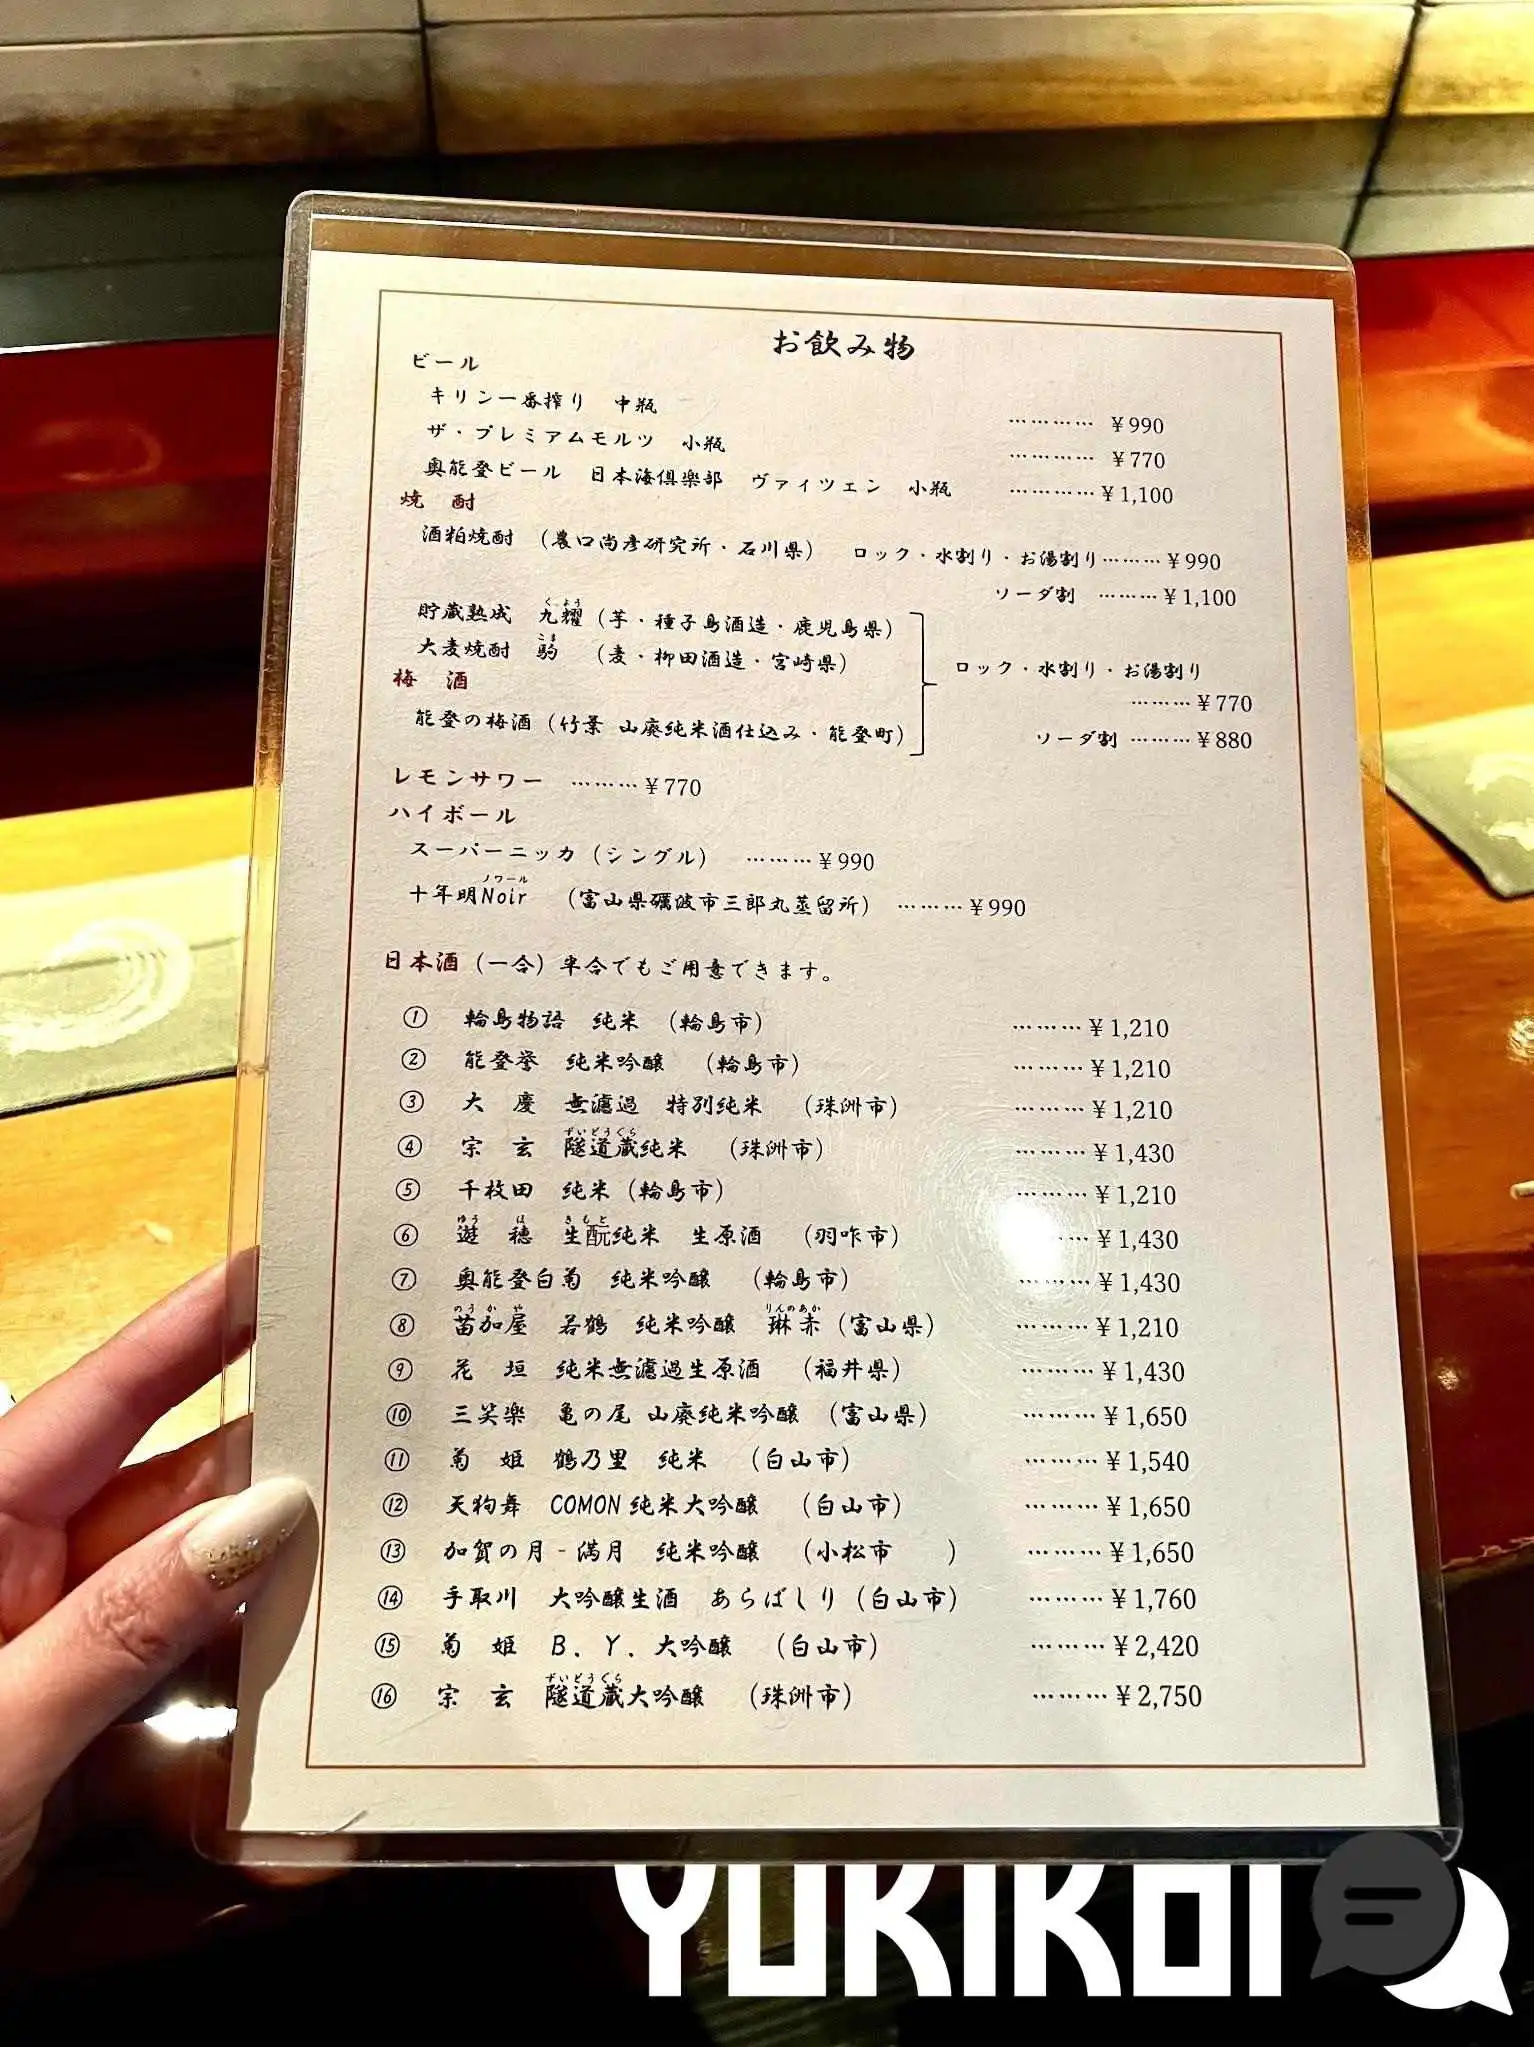 お飲み物
ビール
キリン一番搾り 中瓶 ………… ¥990
ザ・プレミアムモルツ 小瓶 ………… ¥770
奥能登ビール 日本海倶楽部 ヴァイツェン 小瓶 …………¥1,100
焼 酎
酒粕焼酎 (農口尚彦研究所・石川県) ロック・水割り・お湯割り………¥990
ソーダ割 ………¥1,100
貯蔵熟成 九耀(芋・種子島酒造・鹿児島県)
くよう
大麦焼酎 駒 (麦・柳田酒造・宮崎県)
こま
ロック・水割り・お湯割り
………¥770
梅 酒
能登の梅酒(竹葉 山廃純米酒仕込み・能登町)
ソーダ割 ………¥880
レモンサワー ………¥770
ハイボール
スーパーニッカ(シングル) ………¥990
ノワール
十年明Noir (富山県礪波市三郎丸蒸留所) ………¥990
日本酒(一合)半合でもご用意できます。
① 輪島物語 純米 (輪島市) ………¥1,210
② 能登誉 純米吟醸 (輪島市) ………¥1,210
③ 大 慶 無濾過 特別純米 (珠洲市) ………¥1,210
ずいどうぐら
④ 宗 玄 隧道蔵純米 (珠洲市) ………¥1,430
⑤ 千枚田 純米(輪島市) ………¥1,210
ゆう ほ きもと
⑥ 遊 穂 生酛純米 生原酒 (羽咋市) ………¥1,430
⑦ 奥能登白菊 純米吟醸 (輪島市) ………¥1,430
のうかや りんのあか
⑧ 苗加屋 若鶴 純米吟醸 琳赤(富山県) ………¥1,210
⑨ 花 垣 純米無濾過生原酒 (福井県) ………¥1,430
⑩ 三笑楽 亀の尾 山廃純米吟醸 (富山県) ………¥1,650
⑪ 菊 姫 鶴乃里 純米 (白山市) ………¥1,540
⑫ 天狗舞 COMON純米大吟醸 (白山市) ………¥1,650
⑬ 加賀の月-満月 純米吟醸 (小松市 ) ………¥1,650
⑭ 手取川 大吟醸生酒 あらばしり(白山市) ………¥1,760
⑮ 菊 姫 B.Y.大吟醸 (白山市) ………¥2,420
ずいどうぐら
⑯ 宗 玄 隧道蔵大吟醸 (珠洲市) ………¥2,750
YUKIKOI